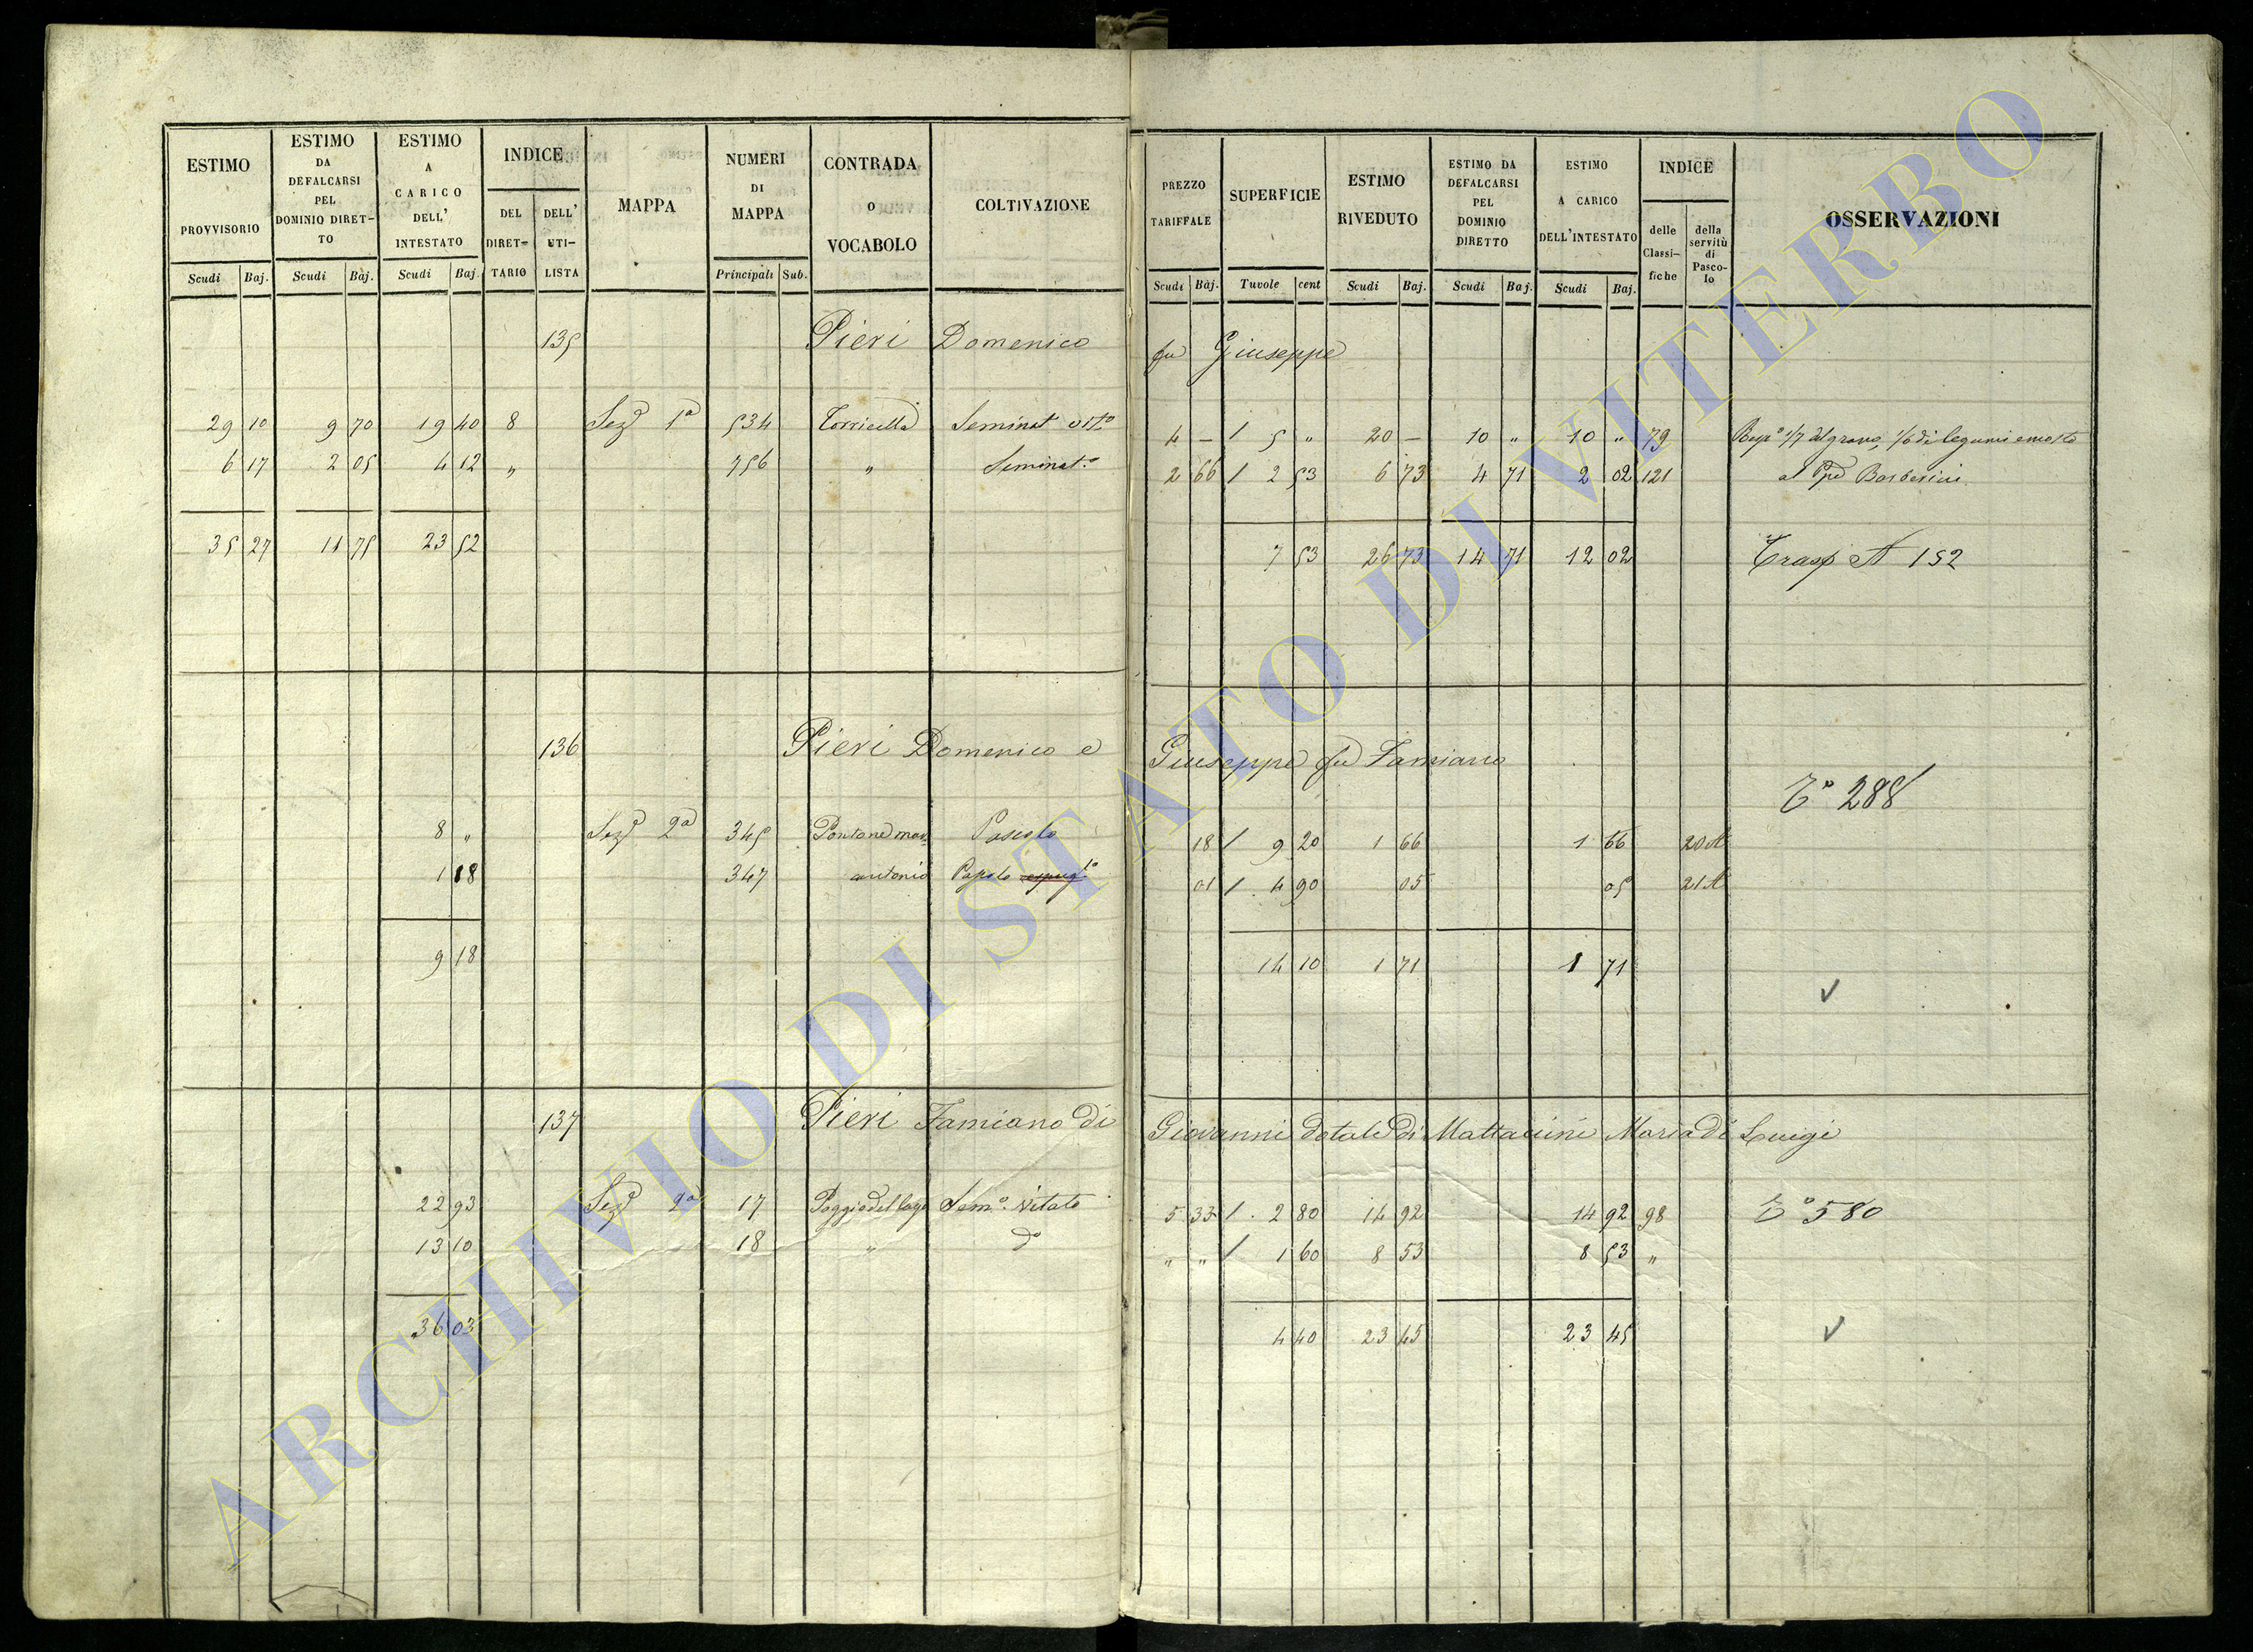 ESTIMO PROVVISORIO Scudi Baj.
ESTIMO DA DEFALCARSI PEL DOMINIO DIRET–TO Scudi Baj.
ESTIMO A CARICO DELL' INTESTATO Scudi Baj.
INDICE DEL DIRET=TARIO DELL' UTI–LISTA
MAPPA
NUMERI DI MAPPA Principali Sub.
CONTRADA O VOCABOLO
COLTIVAZIONE
PREZZO TARIFFALE Scudi Baj.
SUPERFICIE Tavole cent
ESTIMO RIVEDUTO Scudi Baj.
ESTIMO DA DEFALCARSI PEL DOMINIO DIRETTO Scudi Baj.
ESTIMO A CARICO DELL'INTESTATO Scudi Baj.
INDICE delle Classi–fiche della servitù di Pasco–lo
OSSERVAZIONI
135 Pieri Domenico fu Giuseppe
29 10 9 70 19 40 8 Sez. 1a 534 Torricella Seminat vit.o 4 – / 5 " 20 – 10 " 10 " 79 1/7 del grano, 1/6 di legumi e mosto
6 17 2 05 4 12 " 756 " Seminat.o 2 66 / 2 53 6 73 4 71 2 02 121 al Ppe Barberini
35 27 11 75 23 52 7 53 26 73 14 71 12 02 Trasp A 152
136 Pieri Domenico e Giuseppe fu Famiano
To 288
8 " Sez. 2a 345 Pontone mar Pascolo 18 / 9 20 1 66 1 66 20 A
1 18 347 antonio Pascolo 01 / 4 90 05 05 21 A
9 18 14 10 1 71 1 71
137 Pieri Famiano di Giovanni dotale di Mattacini Maria di Luigi
22 93 Sez. 2a 17 Poggio del lago Sem.o Vitato 5 33 / 2 80 14 92 14 92 98 To 580
13 10 18 " do " " / 1 60 8 53 8 53 "
36 03 4 40 23 45 23 45
ARCHIVIO DI STATO DI VITERBO